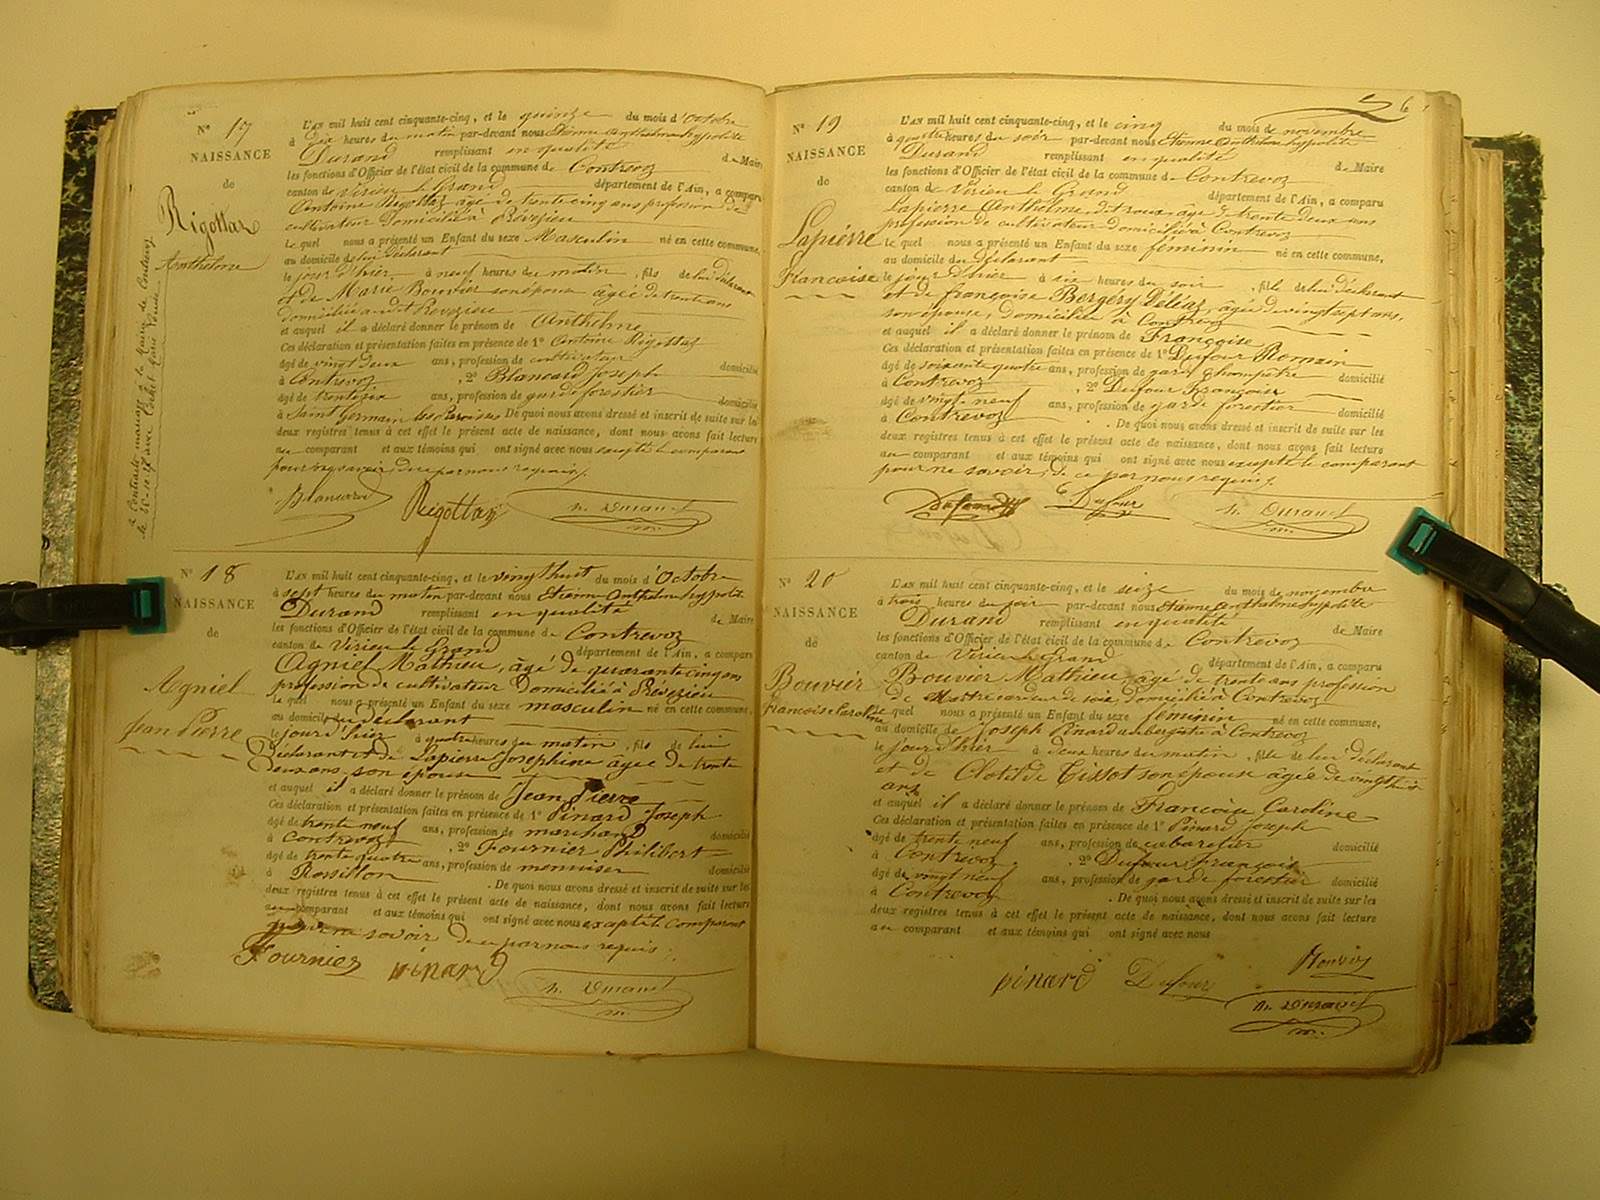 N° 17
NAISSANCE
de
Rigottaz
Anthelme
L'AN mil huit cent cinquante-cinq, et le quinze du mois d'Octobre
à Dix heures du matin par-devant nous Etienne Anthelme hyppolite
Durand remplissant en qualité de Maire
les fonctions d'Officier de l'état civil de la commune de Contrevoz
canton de Virieu le Grand département de l'Ain, a comparu
Antoine Rigottaz âgé de trente cinq ans profession de
cultivateur domicilié à Prévezieu
Le quel nous a présenté un Enfant du sexe Masculin né en cette commune,
au domicile de lui déclarant
le jour d'hier à neuf heures du matin, fils de lui déclarant
et de Marie Bouvier son épouse âgée de trente ans
domiciliée audit Prévezieu
et auquel il a déclaré donner le prénom de Anthelme
Ces déclaration et présentation faites en présence de 1° Antoine Rigottaz
âgé de vingt deux ans, profession de cultivateur domicilié
à Contrevoz, 2° Blancard Joseph
âgé de trente six ans, profession de garde forestier domicilié
à Saint Germain les Paroisses De quoi nous avons dressé et inscrit de suite sur les
deux registres tenus à cet effet le présent acte de naissance, dont nous avons fait lecture
au comparant et aux témoins qui ont signé avec nous excepté le comparant
pour ne savoir de ce par nous requis.
Blancard Rigottaz h. Durand
N° 18
NAISSANCE
de
Agniel
Jean Pierre
L'AN mil huit cent cinquante-cinq, et le vingt huit du mois d'Octobre
à sept heures du matin par-devant nous Etienne Anthelme hyppolite
Durand remplissant en qualité de Maire
les fonctions d'Officier de l'état civil de la commune de Contrevoz
canton de Virieu le Grand département de l'Ain, a comparu
Agniel Mathieu, âgé de quarante cinq ans
profession de cultivateur domicilié à Prévezieu
Le quel nous a présenté un Enfant du sexe masculin né en cette commune,
au domicile du déclarant
le jour d'hier à quatre heures du matin, fils de lui
Déclarant et de Lapierre Josephine âgée de trente
deux ans son épouse
et auquel il a déclaré donner le prénom de Jean Pierre
Ces déclaration et présentation faites en présence de 1° Pinard Joseph
âgé de trente neuf ans, profession de marchand domicilié
à Contrevoz, 2° Fournier Philibert
âgé de trente quatre ans, profession de menuisier domicilié
à Rossillon. De quoi nous avons dressé et inscrit de suite sur les
deux registres tenus à cet effet le présent acte de naissance, dont nous avons fait lecture
au comparant et aux témoins qui ont signé avec nous excepté le comparant
pour ne savoir de ce par nous requis.
Fournier pinard h. Durand
56
N° 19
NAISSANCE
de
Lapierre
Francoise
L'AN mil huit cent cinquante-cinq, et le cinq du mois de novembre
à quatre heures du soir par-devant nous Etienne Anthelme hyppolite
Durand remplissant en qualité de Maire
les fonctions d'Officier de l'état civil de la commune de Contrevoz
canton de Virieu le Grand département de l'Ain, a comparu
Lapierre Anthelme âgé de trente deux ans
profession de cultivateur domicilié à Contrevoz
Le quel nous a présenté un Enfant du sexe féminin né en cette commune,
au domicile du déclarant
le jour d'hier à six heures du soir, fille de lui déclarant
et de françoise Bergery Déléaz, âgée de vingt sept ans,
son épouse, domiciliée à Contrevoz
et auquel il a déclaré donner le prénom de Françoise
Ces déclaration et présentation faites en présence de 1° Dufour Romain
âgé de soixante quatre ans, profession de garde champêtre domicilié
à Contrevoz, 2° Dufour François
âgé de vingt neuf ans, profession de garde forestier domicilié
à Contrevoz. De quoi nous avons dressé et inscrit de suite sur les
deux registres tenus à cet effet le présent acte de naissance, dont nous avons fait lecture
au comparant et aux témoins qui ont signé avec nous excepté le comparant
pour ne savoir, de ce par nous requis.
Dufour h. Durand
N° 20
NAISSANCE
de
Bouvier
Francoise Caroline
L'AN mil huit cent cinquante-cinq, et le seize du mois de novembre
à trois heures du soir par-devant nous Etienne Anthelme hypolite
Durand remplissant en qualité de Maire
les fonctions d'Officier de l'état civil de la commune de Contrevoz
canton de Virieu le Grand département de l'Ain, a comparu
Bouvier Mathieu, âgé de trente ans profession
de Maitre cardeur de soie, domicilié à Contrevoz
Le quel nous a présenté un Enfant du sexe féminin né en cette commune,
au domicile de Joseph Pinard aubergiste à Contrevoz
le jour d'hier à deux heures du matin, fille de lui déclarant
et de Clotilde Tissot son épouse âgée de vingt trois
ans
et auquel il a déclaré donner le prénom de Francoise Caroline
Ces déclaration et présentation faites en présence de 1° Pinard Joseph
âgé de trente neuf ans, profession de cabaretier domicilié
à Contrevoz, 2° Dufour françois
âgé de vingt neuf ans, profession de garde forestier domicilié
à Contrevoz. De quoi nous avons dressé et inscrit de suite sur les
deux registres tenus à cet effet le présent acte de naissance, dont nous avons fait lecture
au comparant et aux témoins qui ont signé avec nous
Bouvier
pinard Dufour
h. Durand